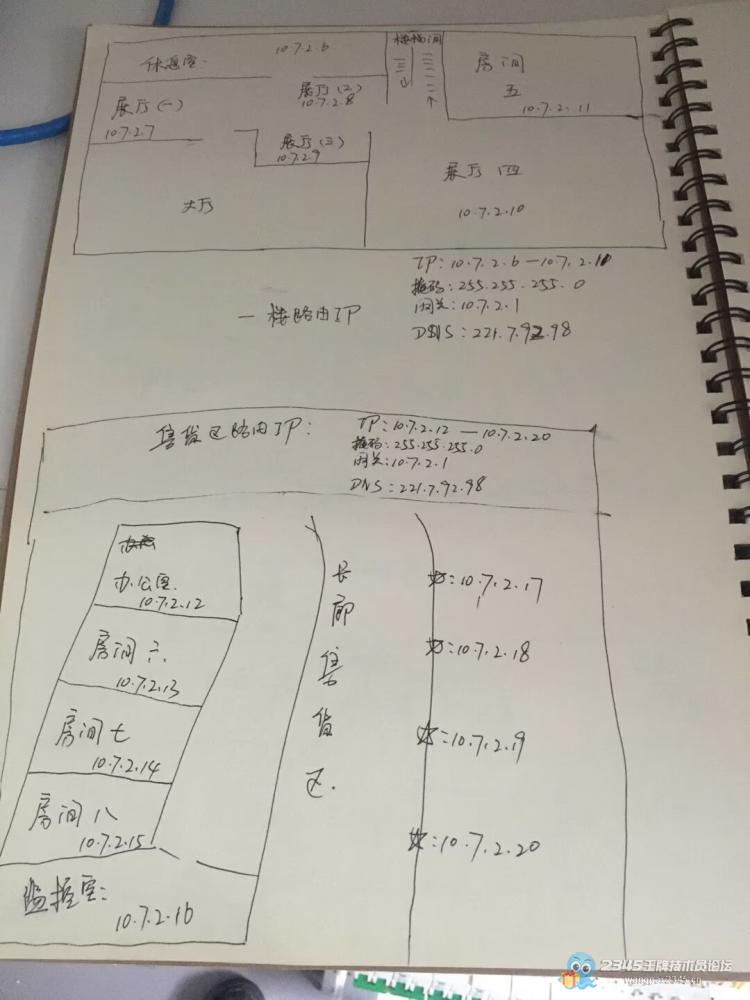 休息室
10.7.2.6
楼梯间
房间
五
10.7.2.11
展厅(二)
10.7.2.8
展厅(一)
10.7.2.7
展厅(三)
10.7.2.9
大厅
展厅四
10.7.2.10
一楼路由IP
IP:10.7.2.6—10.7.2.11
掩码:255.255.255.0
网关:10.7.2.1
DNS:221.7.92.98
售货区路由IP:
IP:10.7.2.12—10.7.2.20
掩码:255.255.255.0
网关:10.7.2.1
DNS:221.7.92.98
办公室
10.7.2.12
房间六
10.7.2.13
房间七
10.7.2.14
房间八
10.7.2.15
监控室:
10.7.2.16
长廊售货区.
:10.7.2.17
:10.7.2.18
:10.7.2.19
:10.7.2.20
2345王牌技术员论坛
wangpai.2345.cn